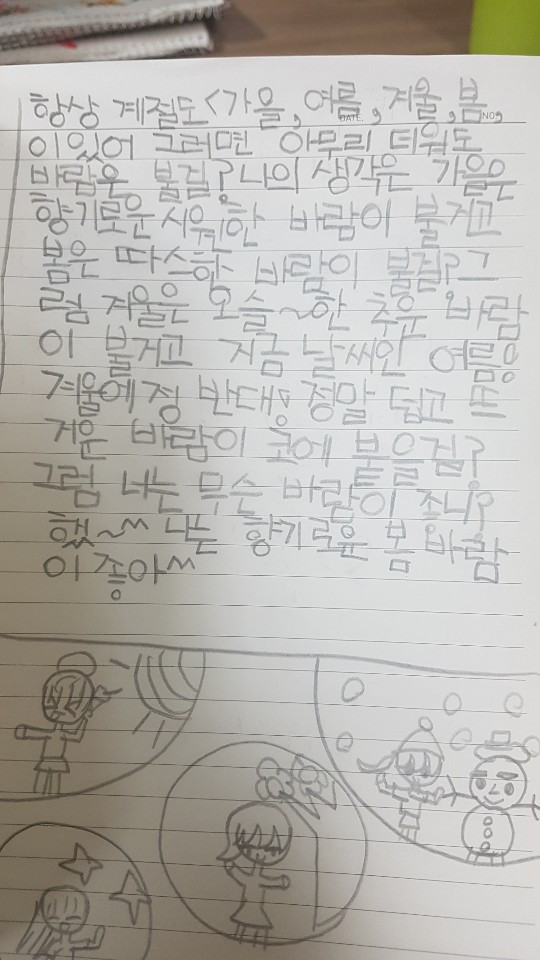 항상 계절도<가을, 여름, 겨울, 봄
DATE. NO.
이있어 그러면 아무리 더워도
바람은 불걸? 나의 생각은 가을은
향기로운 시원한 바람이 불거고
봄은 따스한 바람이 불걸? 그
럼 겨울은 오슬~한 추운 바람
이 불거고 지금 날씨인 여름은
겨울에 정 반대 정말 덥고 뜨
거운 바람이 코에 붙을걸?
그럼 너는 무슨 바람이 조니?
했~ 나는 향기로운 봄 바람
이 좋아^^